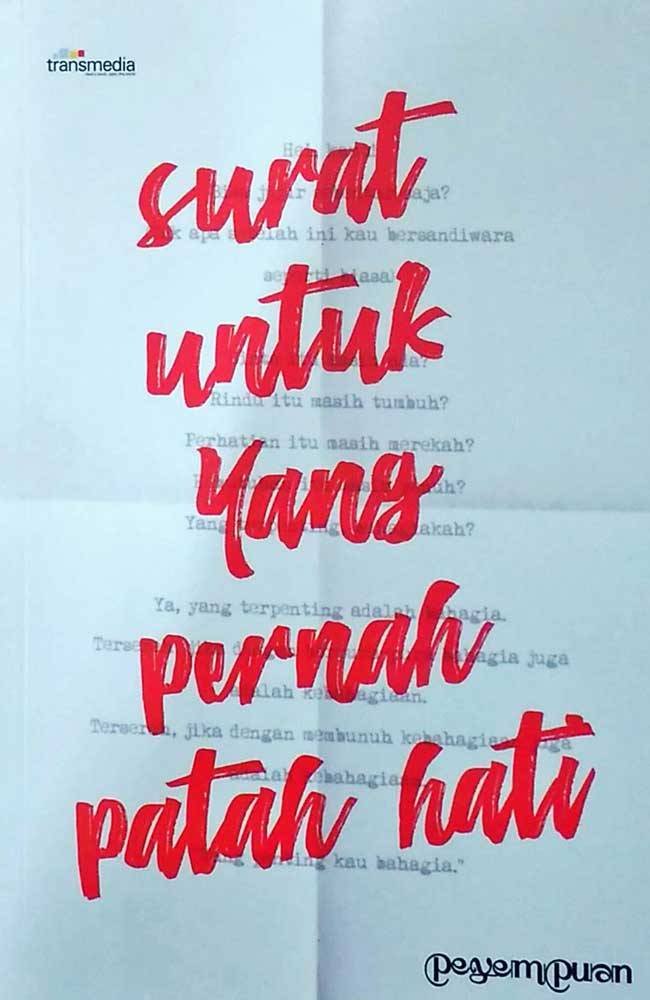 transmedia
surat
untuk
yang
pernah
patah hati
apa setelah ini kau bersandiwara
seperti biasa
Rindu itu masih tumbuh?
Perhatian itu masih merekah?
Yang
Ya, yang terpenting adalah bahagia.
juga
adalah kebahagiaan.
Terserah, jika dengan membunuh kebahagiaan juga
adalah kebahagiaan
yang penting kau bahagia."
peyempuan